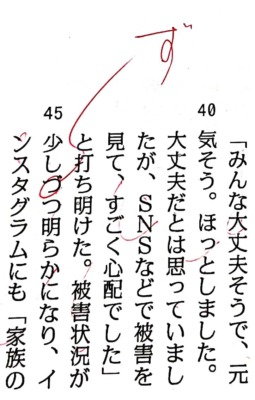 「みんな大丈夫そうで、元
40
気そう。ほっとしました。
大丈夫だとは思っていまし
たが、SNSなどで被害を
見て、すごく心配でした」
と打ち明けた。被害状況が
ず
45
少しづつ明らかになり、イ
ンスタグラムにも「家族の